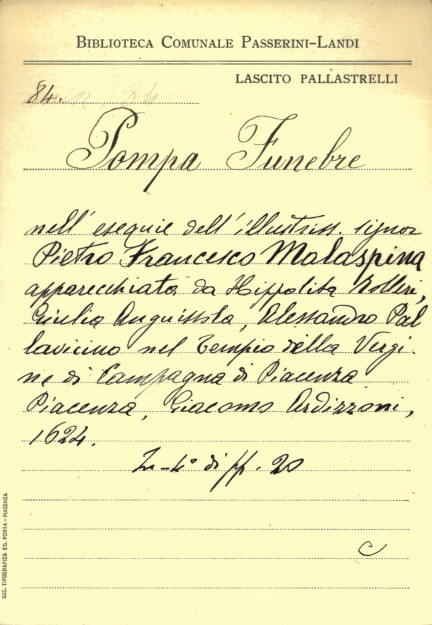 BIBLIOTECA COMUNALE PASSERINI-LANDI
LASCITO PALLASTRELLI
84.
Pompa Funebre
nell' esequie dell' illustriss. signor
Pietro Francesco Malaspina
apparecchiata da Hippolita
Giulio Anguissola, Alessandro Pal
lavicino nel Tempio della Vergi
ne di Campagna di Piacenza
Piacenza, Giacomo Ardizzoni,
1624.
In-4° di ff. 20
C
SOC. TIPOGRAFICA ED. PORTA - PIACENZA